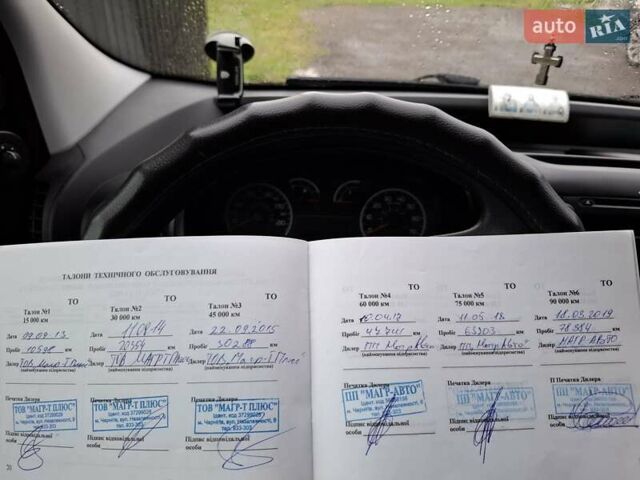 auto RIA.com
ТАЛОНИ ТЕХНІЧНОГО ОБСЛУГОВУВАННЯ
ТО
Талон №1
15 000 км
Дата 09.09.13
Пробіг 10598 км
Дилер
ТОВ
(найменування підприємства)
Печатка Дилера
ТОВ "МАГР-Т ПЛЮС"
Ідент. код 37299028
м. Чернігів, вул. Незалежності,
тел. 933-303
Підпис відповідальної
особи
ТО
Талон №2
30 000 км
Дата 11.09.14
Пробіг 20354 км
Дилер
ТОВ МАГР Т Плюс
(найменування підприємства)
Печатка Дилера
ТОВ "МАГР-Т ПЛЮС"
Ідент. код 37299028
м. Чернігів, вул. Незалежності,
тел. 933-303
Підпис відповідальної
особи
ТО
Талон №3
45 000 км
Дата 22.09.2015
Пробіг 30288 км
Дилер
ТОВ "Магр-Т Плюс"
(найменування підприємства)
Печатка Дилера
ТОВ "МАГР-Т ПЛЮС"
Ідент. код 37299028
м. Чернігів, вул. Незалежності,
тел. 933-303
Підпис відповідальної
особи
ТО
Талон №4
60 000 км
Дата 04.17
Пробіг 45741 км
Дилер
ПП
(найменування підприємства)
Печатка Дилера
ПП "МАГР-АВТО"
Підпис відповідальної
особи
ТО
Талон №5
75 000 км
Дата 11.05.18
Пробіг 63303 км
Дилер
ПП "Магр Авто"
(найменування підприємства)
Печатка Дилера
ПП "МАГР-АВТО"
Підпис відповідальної
особи
ТО
Талон №6
90 000 км
Дата 18.03.2019
Пробіг 78384 км
Дилер
МАГР-АВТО
(найменування підприємства)
Печатка Дилера
ПП "МАГР-АВТО"
Підпис відповідальної
особи